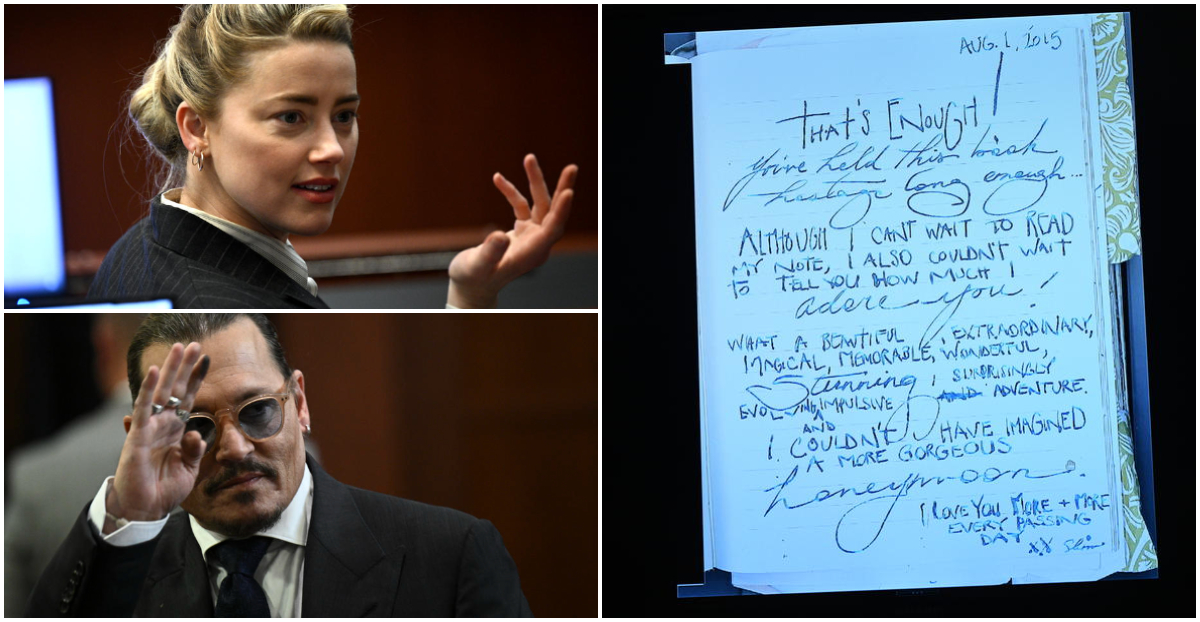 AUG. 1, 2015
THAT'S ENOUGH!
You've held this book
hostage long enough...
ALTHOUGH I CAN'T WAIT TO READ
MY NOTE, I ALSO COULDN'T WAIT
TO TELL YOU HOW MUCH I
adore you!
WHAT A BEWTIFUL, EXTRAORDINARY,
MAGICAL, MEMORABLE, WONDERFUL,
Stunning, SURPRISINGLY
EVOLVING, IMPULSIVE AND ADVENTURE.
AND
I COULDN'T HAVE IMAGINED
A MORE GORGEOUS
honeymoon.
I LOVE YOU MORE + MORE
EVERY PASSING
DAY
XX Slim